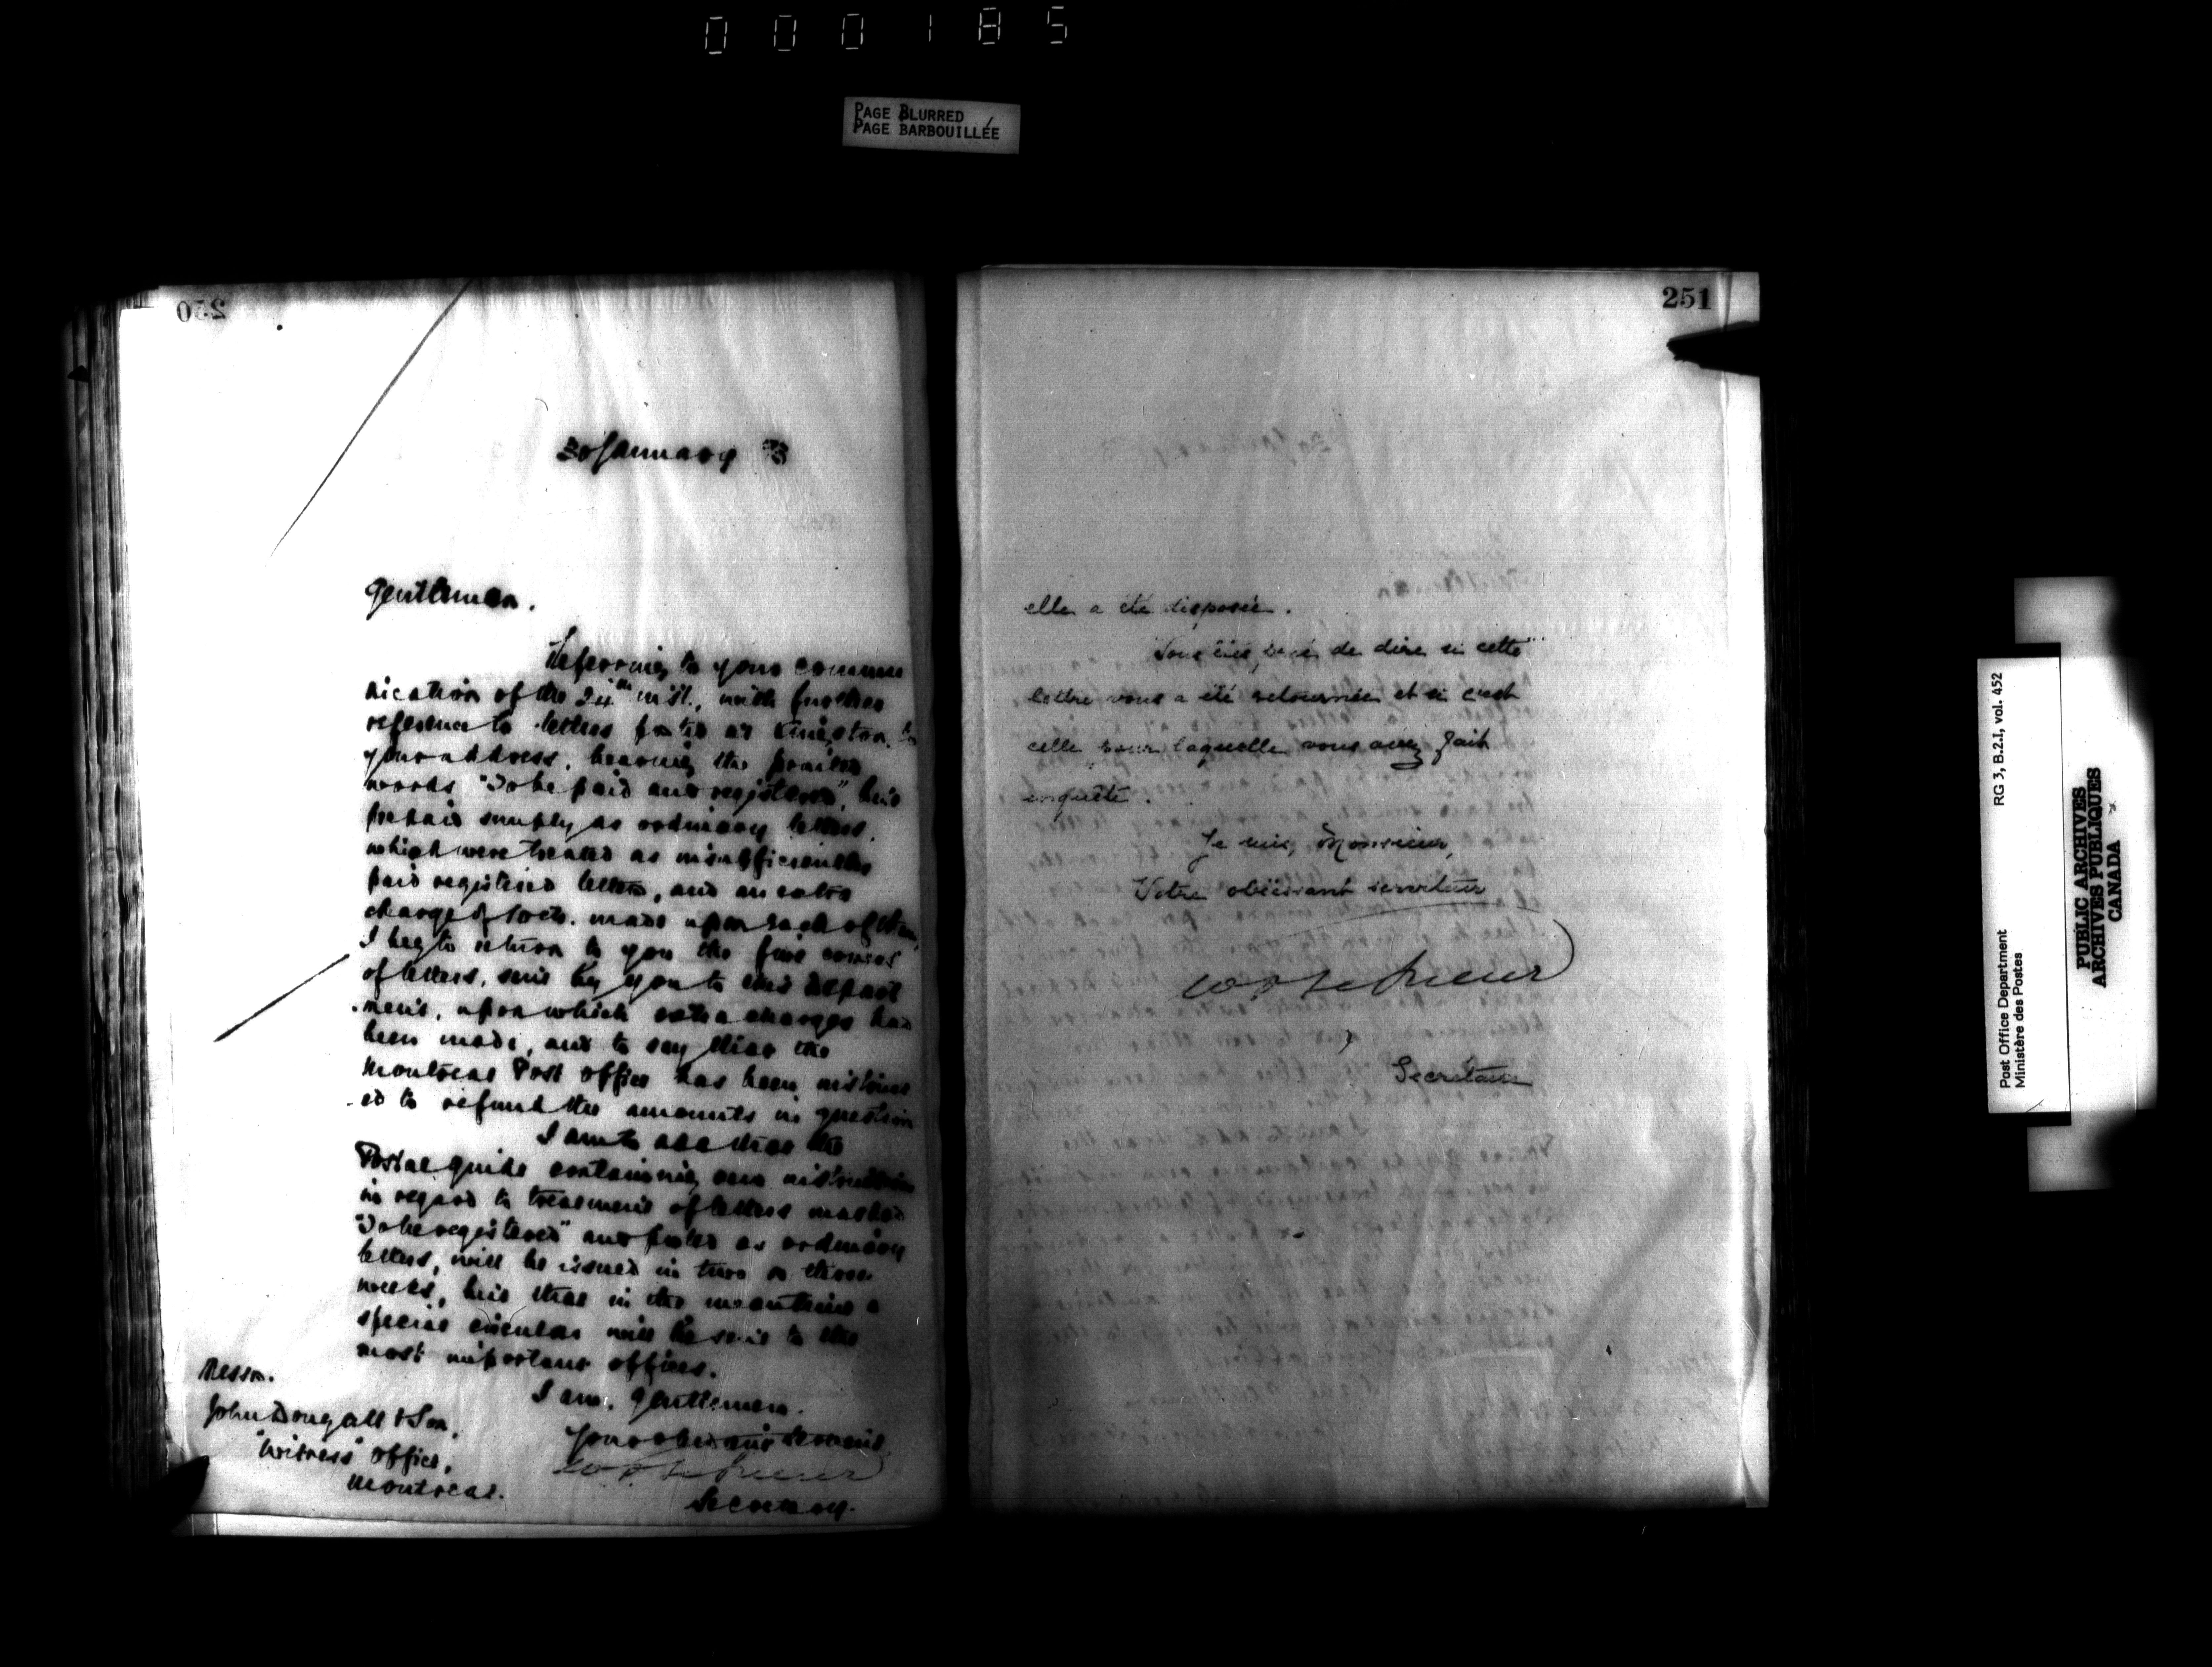 000185
PAGE BLURRED
PAGE BARBOUILLÉE
250
30 January 3
Gentlemen.
Referring to your commu
nication of the 24th inst., with further
reference to letters posted at Kingston, to
your address, bearing the printed
words "To be paid and registered", but
prepaid simply as ordinary letters,
which were treated as insufficiently
paid registered letters, and an extra
charge of made upon each of them,
I beg to return to you the five covers
of letters, sent by you to this Depart
ment, upon which extra charges had
been made, and to say that the
Montreal Post Office has been instruct
-ed to refund the amounts in question
I am to add that the
Postal guide containing our instructions
in regard to treatment of letters marked
"To be registered" and posted as ordinary
letters, will be issued in two or three
weeks, but that in the meantime a
special circular will be sent to the
most important offices.
I am, Gentlemen.
Your obedient Servant
Secretary.
Messrs.
John Dougall & Son,
"Witness" Office,
Montreal.
251
elle a été disposée.
Vous êtes prié de dire si cette
lettre vous a été retournée et si c'est
celle pour laquelle vous avez fait
enquête.
Je suis, Monsieur,
Votre obéissant serviteur
Secrétaire
Post Office Department
Ministère des Postes
RG 3, B.2.I, vol. 452
PUBLIC ARCHIVES
ARCHIVES PUBLIQUES
CANADA